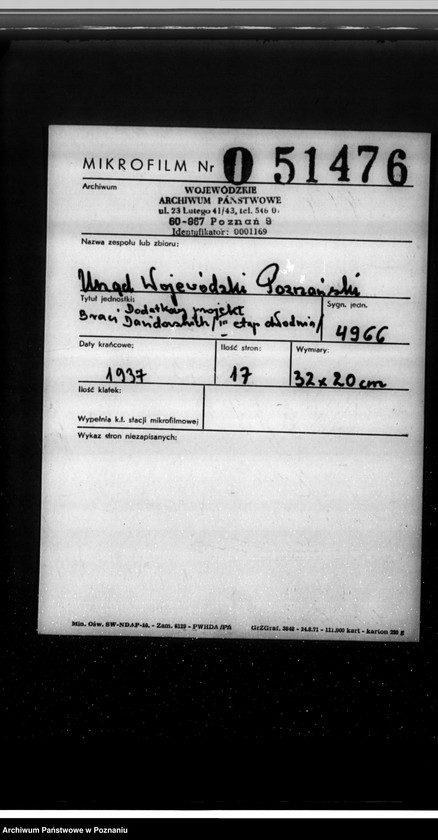 MIKROFILM Nr 0 51476
Archiwum
WOJEWÓDZKIE
ARCHIWUM PAŃSTWOWE
ul. 23 Lutego 41/43, tel. 546 0.
60-967 Poznań 9
Identyfikator: 0001169
Nazwa zespołu lub zbioru:
Urząd Wojewódzki Poznański
Tytuł jednostki:
Dodatkowy projekt
Braci
Sygn. jedn.
4966
Daty krańcowe:
Ilość stron:
Wymiary:
1937
17
32 x 20 cm
Ilość klatek:
Wypełnia k.t. stacji mikrofilmowej
Wykaz stron niezapisanych:
Min. Ośw. SW-NDAP-16. - Zam. 6129 - PWHDA/Pń
GrZGraf. 3042 - 24.8.71 - 111.000 kart - karton 220 g
Archiwum Państwowe w Poznaniu